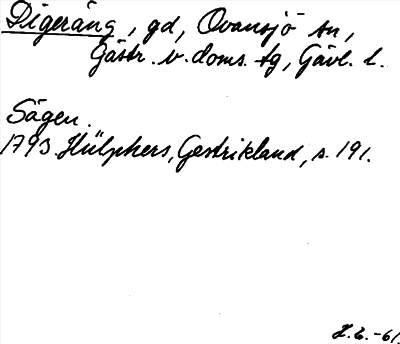 Digeräng, gd, Ovansjö sn,
Gästr. v. doms. tg, Gävl. l.
Sägen.
1793 Hülphers, Gestrikland, s. 191.
H.L. -61.